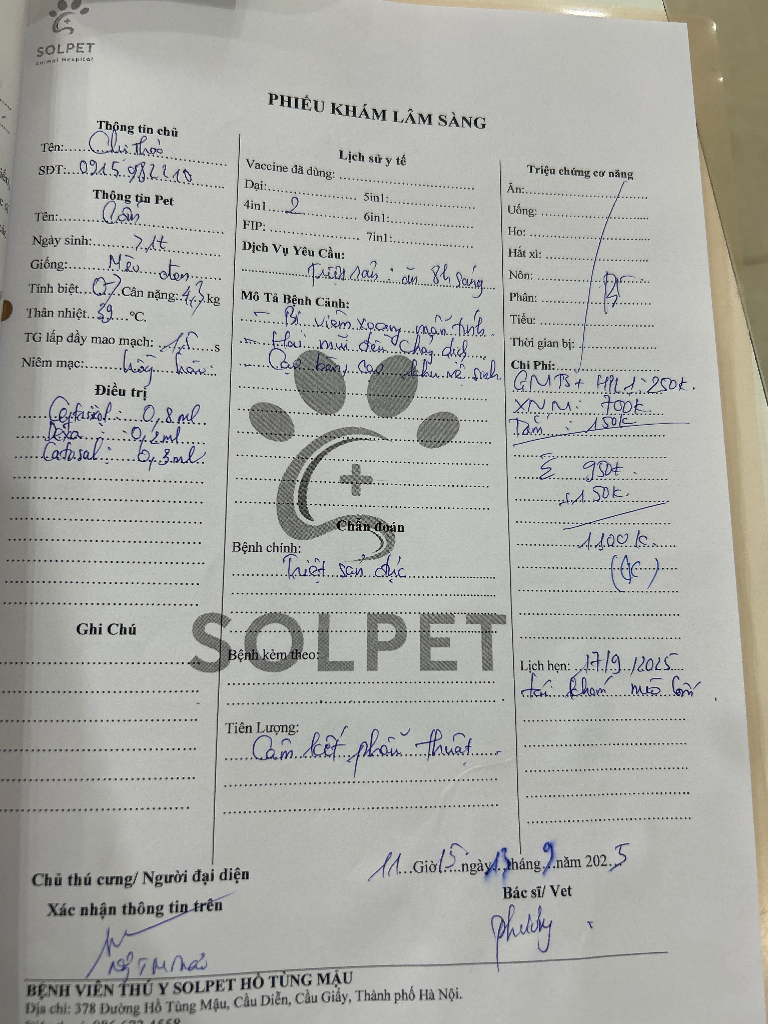 SOLPET
Animal Hospital
PHIẾU KHÁM LÂM SÀNG
Thông tin chủ
Tên: Chị Thảo
SĐT: 0915982210
Thông tin Pet
Tên:
Ngày sinh: >1t
Giống: Mèo đen
Tính biệt: Cân nặng: 4,3 kg
Thân nhiệt: 39 °C.
TG lấp đầy mao mạch: 1,5 s
Niêm mạc: hồng hào
Điều trị
0,8ml
Dexa: 0,2ml
Catosal: 0,3ml
Ghi Chú
Lịch sử y tế
Vaccine đã dùng:
Dại: 5in1:
4in1 2 6in1:
FIP: 7in1:
Dịch Vụ Yêu Cầu:
Triệt sản: ăn 8h sáng
Mô Tả Bệnh Cảnh:
- Bị viêm xoang mãn tính
- Hai mũi đều chảy dịch
- Cạo bàn, cạo khu vệ sinh
Chẩn đoán
Bệnh chính:
Triệt sản đực
SOLPET
Bệnh kèm theo:
Tiên Lượng:
Cam kết phẫu thuật
Triệu chứng cơ năng
Ăn:
Uống:
Ho:
Hắt xì:
Nôn:
Phân:
Tiểu:
Thời gian bị:
Chi Phí:
GMTS + HPL1: 250k
XNM: 700k
Tắm: 150k
Σ 950k
150k
1100k
(CK)
Lịch hẹn: 17/9/2025
tái khám mèo
11 Giờ 15 ngày 13 tháng 9 năm 2025
Chủ thú cưng/ Người đại diện
Xác nhận thông tin trên
Bác sĩ/ Vet
BỆNH VIỆN THÚ Y SOLPET HỒ TÙNG MẬU
Địa chỉ: 378 Đường Hồ Tùng Mậu, Cầu Diễn, Cầu Giấy, Thành phố Hà Nội.